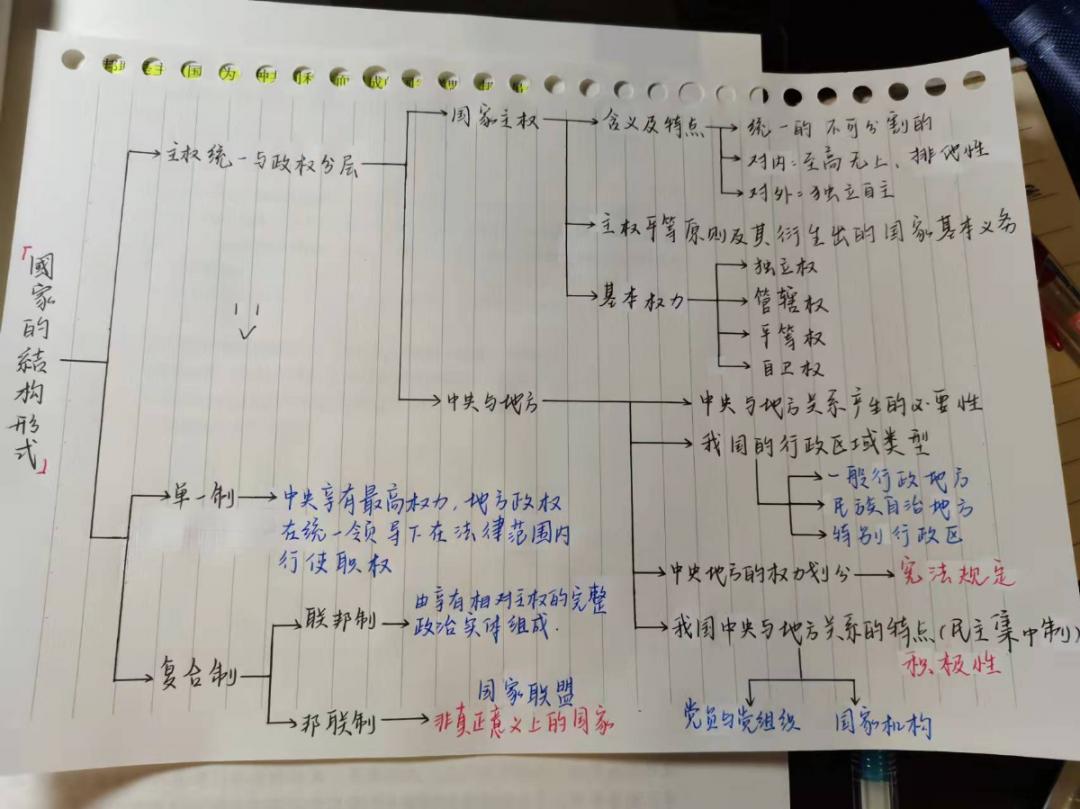 「國家的結构形式」
主权统一与政权分层
国家主权
含义及特点
统一的 不可分割的
对内:至高无上、排他性
对外:独立自主
主权平等原则及其衍生出的国家基本义务
基本权力
独立权
管辖权
平等权
自卫权
中央与地方
中央与地方关系产生的必要性
我国的行政区域类型
一般行政地方
民族自治地方
特别行政区
中央地方的权力划分
宪法规定
我国中央与地方关系的特点(民主集中制)
积极性
党员与党组织
国家机构
单一制
中央享有最高权力,地方政权
在统一领导下在法律范围内
行使职权
复合制
联邦制
由享有相对主权的完整
政治实体组成.
邦联制
国家联盟
非真正意义上的国家